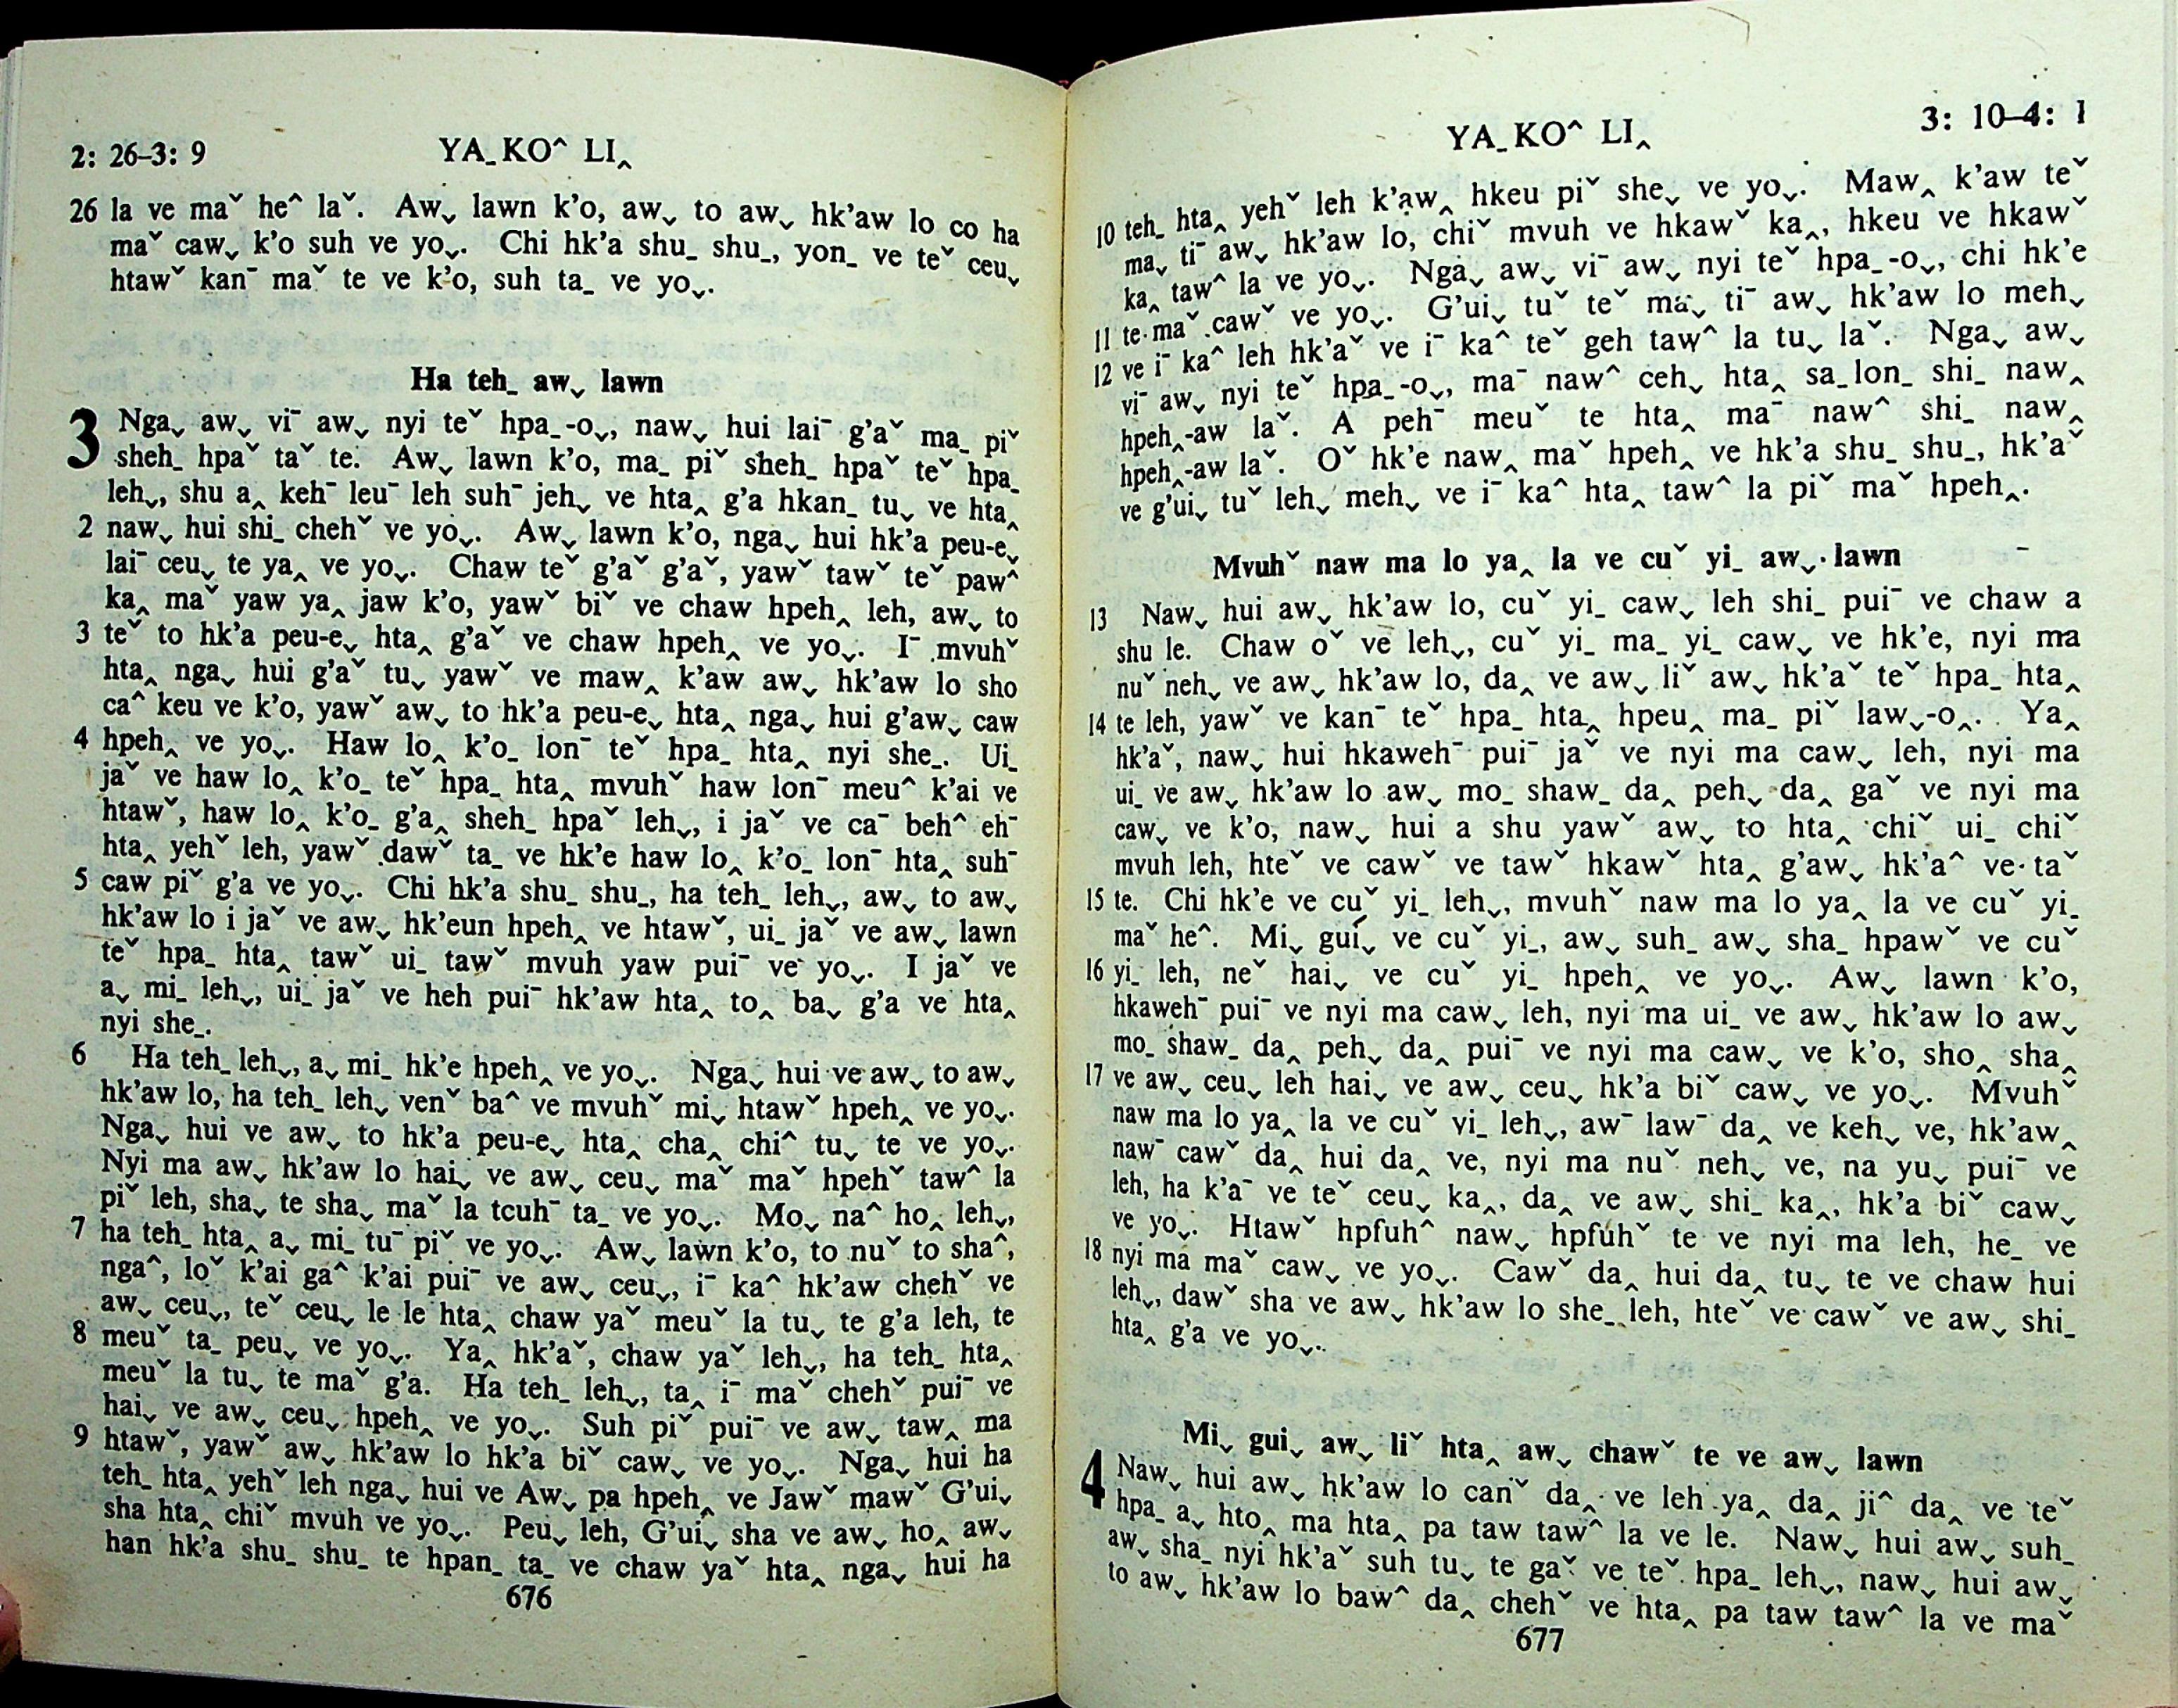 2: 26–3: 9
YA_ KOˆ LI‸
26 la ve maˇ heˆ laˇ. Aw⌄ lawn k’o, aw⌄ to aw⌄ hk’aw lo co ha
maˇ caw⌄ k’o suh ve yo⌄. Chi hk’a shu_ shu_, yon_ ve teˇ ceu⌄
htawˇ kanˉ maˇ te ve k’o, suh ta_ ve yo⌄.
Ha teh_ aw⌄ lawn
3 Nga⌄ aw⌄ viˉ aw⌄ nyi teˇ hpa_-o⌄, naw⌄ hui laiˉ g’aˇ ma_ piˇ
sheh_ hpaˇ taˇ te. Aw⌄ lawn k’o, ma_ piˇ sheh_ hpaˇ teˇ hpa_
leh⌄, shu a‸ kehˉ leuˉ leh suhˉ jeh⌄ ve hta‸ g’a hkan_ tu⌄ ve hta‸
2 naw⌄ hui shi_ chehˇ ve yo⌄. Aw⌄ lawn k’o, nga⌄ hui hk’a peu-e⌄
laiˉ ceu⌄ te ya‸ ve yo⌄. Chaw teˇ g’aˇ g’aˇ, yawˇ tawˇ teˇ pawˆ
ka‸ maˇ yaw ya‸ jaw k’o, yawˇ biˇ ve chaw hpeh‸ leh, aw⌄ to
3 teˇ to hk’a peu-e⌄ hta‸ g’aˇ ve chaw hpeh‸ ve yo⌄. Iˉ mvuhˇ
hta‸ nga⌄ hui g’aˇ tu⌄ yawˇ ve maw‸ k’aw aw⌄ hk’aw lo sho
caˆ keu ve k’o, yawˇ aw⌄ to hk’a peu-e⌄ hta‸ nga⌄ hui g’aw⌄ caw
4 hpeh‸ ve yo⌄. Haw lo‸ k’o_ lonˉ teˇ hpa_ hta‸ nyi she_. Ui_
jaˇ ve haw lo‸ k’o_ teˇ hpa_ hta‸ mvuhˇ haw lonˉ meuˆ k’ai ve
htawˇ, haw lo‸ k’o_ g’a‸ sheh_ hpaˇ leh⌄, i jaˇ ve caˉ behˆ ehˉ
hta‸ yehˇ leh, yawˇ dawˇ ta_ ve hk’e haw lo‸ k’o_ lonˉ hta‸ suhˉ
5 caw piˇ g’a ve yo⌄. Chi hk’a shu_ shu_, ha teh_ leh⌄, aw⌄ to aw⌄
hk’aw lo i jaˇ ve aw⌄ hk’eun hpeh‸ ve htawˇ, ui_ jaˇ ve aw⌄ lawn
teˇ hpa_ hta‸ tawˇ ui_ tawˇ mvuh yaw puiˉ ve yo⌄. I jaˇ ve
a⌄ mi_ leh⌄, ui_ jaˇ ve heh puiˉ hk’aw hta‸ to‸ ba⌄ g’a ve hta‸
nyi she_.
6 Ha teh_ leh⌄, a⌄ mi_ hk’e hpeh‸ ve yo⌄. Nga⌄ hui ve aw⌄ to aw⌄
hk’aw lo, ha teh_ leh⌄ venˇ baˆ ve mvuhˇ mi⌄ htawˇ hpeh‸ ve yo⌄.
Nga⌄ hui ve aw⌄ to hk’a peu-e⌄ hta‸ cha‸ chiˆ tu⌄ te ve yo⌄.
Nyi ma aw⌄ hk’aw lo hai⌄ ve aw⌄ ceu⌄ maˇ maˇ hpehˇ tawˆ la
piˇ leh, sha⌄ te sha⌄ maˇ la tcuhˉ ta_ ve yo⌄. Mo⌄ naˆ ho‸ leh⌄,
7 ha teh_ hta‸ a⌄ mi_ tuˉ piˇ ve yo⌄. Aw⌄ lawn k’o, to nuˇ to shaˆ,
ngaˆ, loˇ k’ai gaˆ k’ai puiˉ ve aw⌄ ceu⌄, iˉ kaˆ hk’aw chehˇ ve
aw⌄ ceu⌄, teˇ ceu⌄ le le hta‸ chaw yaˇ meuˇ la tu⌄ te g’a leh, te
8 meuˇ ta_ peu⌄ ve yo⌄. Ya‸ hk’aˇ, chaw yaˇ leh⌄, ha teh_ hta‸
meuˇ la tu⌄ te maˇ g’a. Ha teh_ leh⌄, ta‸ iˉ maˇ chehˇ puiˉ ve
hai⌄ ve aw⌄ ceu⌄ hpeh‸ ve yo⌄. Suh piˇ puiˉ ve aw⌄ taw‸ ma
9 htawˇ, yawˇ aw⌄ hk’aw lo hk’a biˇ caw⌄ ve yo⌄. Nga⌄ hui ha
teh_ hta‸ yehˇ leh nga⌄ hui ve Aw⌄ pa hpeh‸ ve Jawˇ mawˇ G’ui⌄
sha hta‸ chiˇ mvuh ve yo⌄. Peu⌄ leh, G’ui⌄ sha ve aw⌄ ho‸ aw⌄
han hk’a shu_ shu_ te hpan_ ta_ ve chaw yaˇ hta‸ nga⌄ hui ha
676
YA_ KOˆ LI‸
3: 10–4: 1
10 teh_ hta‸ yehˇ leh k’aw‸ hkeu piˇ she⌄ ve yo⌄. Maw‸ k’aw teˇ
ma⌄ tiˉ aw⌄ hk’aw lo, chiˇ mvuh ve hkawˇ ka‸, hkeu ve hkawˇ
ka‸ tawˆ la ve yo⌄. Nga⌄ aw⌄ viˉ aw⌄ nyi teˇ hpa_-o⌄, chi hk’e
11 te maˇ cawˇ ve yo⌄. G’ui⌄ tuˇ teˇ ma⌄ tiˉ aw⌄ hk’aw lo meh⌄
12 ve iˉ kaˆ leh hk’aˇ ve iˉ kaˆ teˇ geh tawˆ la tu⌄ laˇ. Nga⌄ aw⌄
viˉ aw⌄ nyi teˇ hpa_-o⌄, maˉ nawˆ ceh⌄ hta‸ sa_ lon_ shi_ naw‸
hpeh‸-aw laˇ. A pehˉ meuˇ te hta‸ maˉ nawˆ shi_ naw‸
hpeh‸-aw laˇ. Oˇ hk’e naw‸ maˇ hpeh‸ ve hk’a shu_ shu_, hk’aˇ
ve g’ui⌄ tuˇ leh⌄ meh⌄ ve iˉ kaˆ hta‸ tawˆ la piˇ maˇ hpeh‸.
Mvuhˇ naw ma lo ya‸ la ve cuˇ yi_ aw⌄ lawn
13 Naw⌄ hui aw⌄ hk’aw lo, cuˇ yi_ caw⌄ leh shi_ puiˉ ve chaw a
shu le. Chaw oˇ ve leh⌄, cuˇ yi_ ma_ yi_ caw⌄ ve hk’e, nyi ma
nuˇ neh⌄ ve aw⌄ hk’aw lo, da‸ ve aw⌄ liˇ aw⌄ hk’aˇ teˇ hpa_ hta‸
14 te leh, yawˇ ve kanˉ teˇ hpa_ hta‸ hpeu‸ ma_ piˇ law⌄-o‸. Ya‸
hk’aˇ, naw⌄ hui hkawehˉ puiˉ jaˇ ve nyi ma caw⌄ leh, nyi ma
ui_ ve aw⌄ hk’aw lo aw⌄ mo_ shaw_ da‸ peh⌄ da‸ gaˇ ve nyi ma
caw⌄ ve k’o, naw⌄ hui a shu yawˇ aw⌄ to hta‸ chiˇ ui_ chiˇ
mvuh leh, hteˇ ve cawˇ ve tawˇ hkawˇ hta‸ g’aw⌄ hk’aˆ ve taˇ
15 te. Chi hk’e ve cuˇ yi_ leh⌄, mvuhˇ naw ma lo ya‸ la ve cuˇ yi_
maˇ heˆ. Mi⌄ gui⌄ ve cuˇ yi_, aw⌄ suh_ aw⌄ sha_ hpawˇ ve cuˇ
16 yi_ leh, neˇ hai⌄ ve cuˇ yi_ hpeh‸ ve yo⌄. Aw⌄ lawn k’o,
hkawehˉ puiˉ ve nyi ma caw⌄ leh, nyi ma ui_ ve aw⌄ hk’aw lo aw⌄
mo_ shaw_ da‸ peh⌄ da‸ puiˉ ve nyi ma caw⌄ ve k’o, sho‸ sha‸
17 ve aw⌄ ceu⌄ leh hai⌄ ve aw⌄ ceu⌄ hk’a biˇ caw⌄ ve yo⌄. Mvuhˇ
naw ma lo ya‸ la ve cuˇ yi_ leh⌄, awˉ lawˉ da‸ ve keh⌄ ve, hk’aw‸
nawˉ cawˇ da‸ hui da‸ ve, nyi ma nuˇ neh⌄ ve, na yu⌄ puiˉ ve
leh, ha k’aˉ ve teˇ ceu⌄ ka‸, da‸ ve aw⌄ shi_ ka‸, hk’a biˇ caw⌄
ve yo⌄. Htawˇ hpfuhˆ naw⌄ hpfuhˇ te ve nyi ma leh, he_ ve
18 nyi ma maˇ caw⌄ ve yo⌄. Cawˇ da‸ hui da‸ tu⌄ te ve chaw hui
leh⌄, dawˇ sha ve aw⌄ hk’aw lo she_ leh, hteˇ ve cawˇ ve aw⌄ shi_
hta‸ g’a ve yo⌄.
Mi⌄ gui⌄ aw⌄ liˇ hta‸ aw⌄ chawˇ te ve aw⌄ lawn
4 Naw⌄ hui aw⌄ hk’aw lo canˇ da‸ ve leh ya‸ da‸ jiˆ da‸ ve teˇ
hpa_ a⌄ hto‸ ma hta‸ pa taw tawˆ la ve le. Naw⌄ hui aw⌄ suh_
aw⌄ sha_ nyi hk’aˇ suh tu⌄ te gaˇ ve teˇ hpa_ leh⌄, naw⌄ hui aw⌄
to aw⌄ hk’aw lo bawˆ da‸ chehˇ ve hta‸ pa taw tawˆ la ve maˇ
677